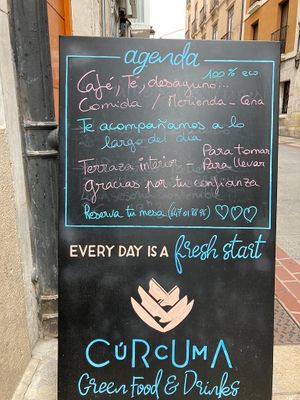 agenda
100% eco
Café, Té, desayuno...
Comida / Merienda - Cena
Te acompañamos a lo
largo del día
Para tomar
Terraza interior - Para llevar
gracias por tu confianza
Reserva tu mesa
EVERY DAY IS A fresh start
CÚRCUMA
Green Food & Drinks